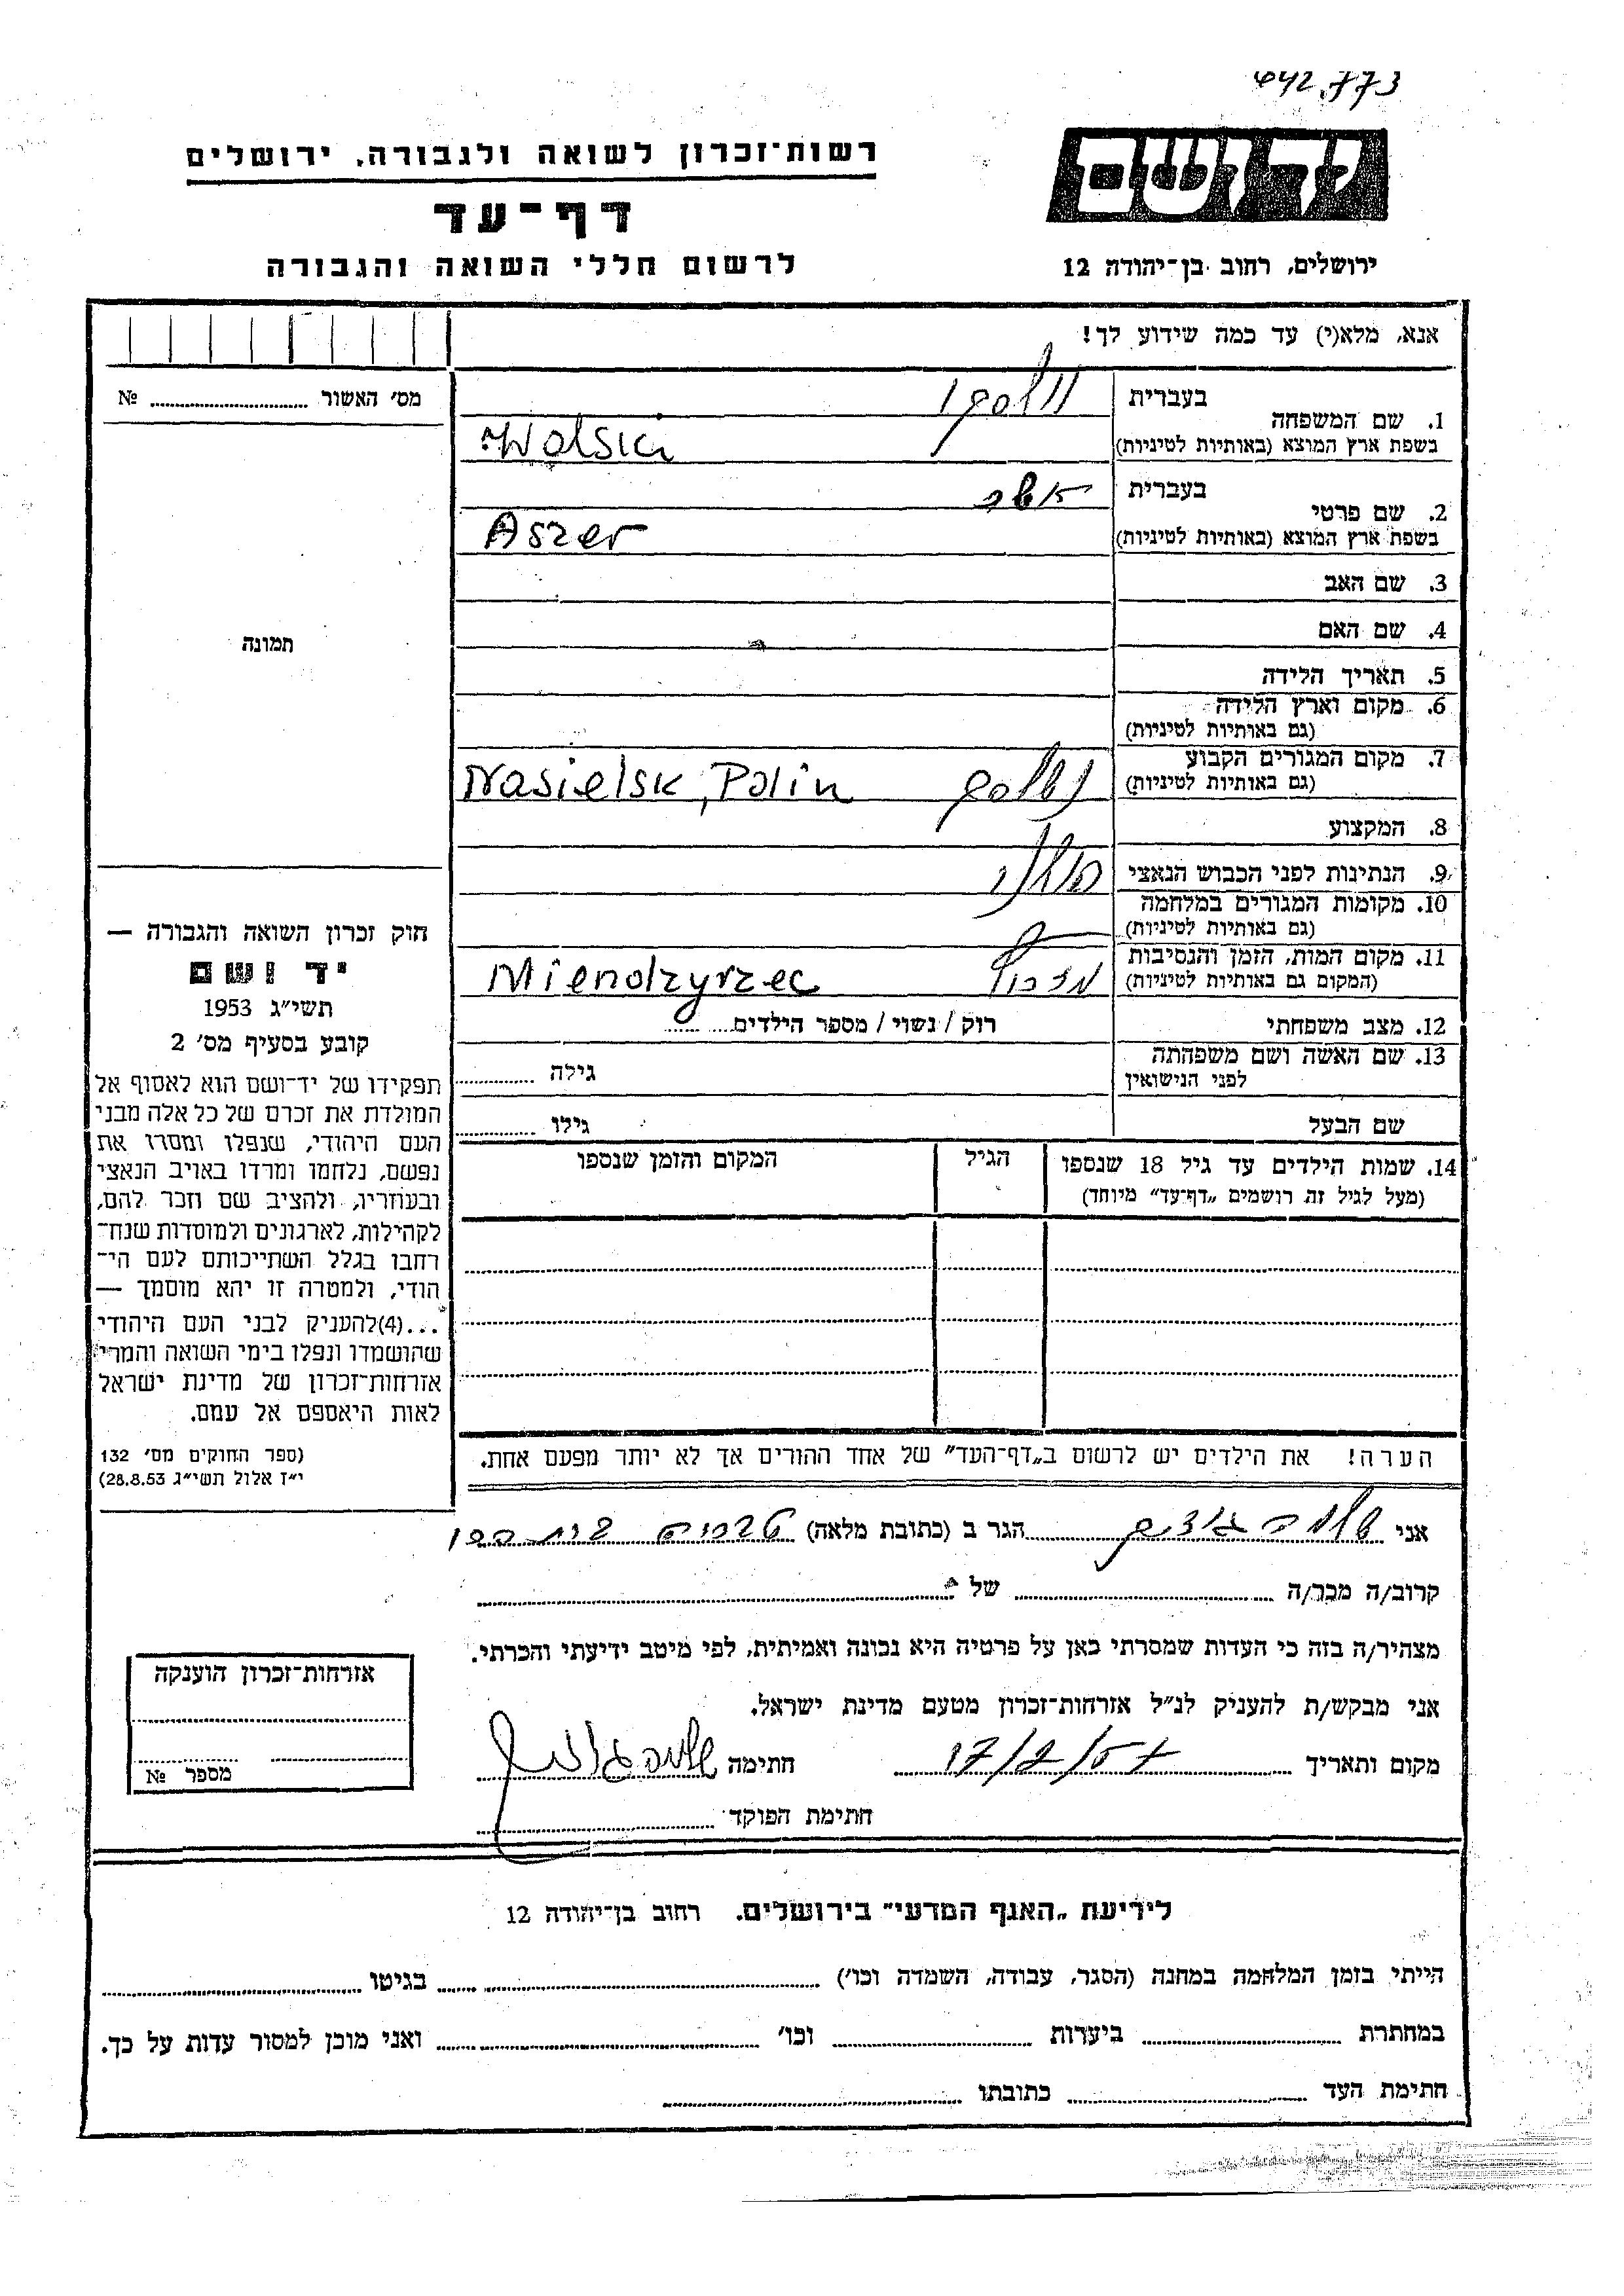 442.773
יד ושם
רשות־זכרון לשואה ולגבורה, ירושלים
דף־עד
לרשום חללי השואה והגבורה
ירושלים, רחוב בן־יהודה 12
אנא, מלא(י) עד כמה שידוע לך!
מס׳ האשור № ........
1. שם המשפחה
בעברית
וולסקי
בשפת ארץ המוצא (באותיות לטיניות)
Wolski
2. שם פרטי
בעברית
אשר
בשפת ארץ המוצא (באותיות לטיניות)
Aszer
3. שם האב
4. שם האם
תמונה
5. תאריך הלידה
6. מקום וארץ הלידה
(גם באותיות לטיניות)
7. מקום המגורים הקבוע
(גם באותיות לטיניות)
נשלסק Nasielsk, Polin
8. המקצוע
9. הנתינות לפני הכבוש הנאצי
פולני
10. מקומות המגורים במלחמה
(גם באותיות לטיניות)
11. מקום המות, הזמן והנסיבות
(המקום גם באותיות לטיניות)
Miendzyrzec
12. מצב משפחתי
רוק / נשוי / מספר הילדים........
13. שם האשה ושם משפחתה
לפני הנישואין
גילה ........
שם הבעל
גילו ........
14. שמות הילדים עד גיל 18 שנספו
(מעל לגיל זה רושמים „דף־עד” מיוחד)
הגיל
המקום והזמן שנספו
הערה! את הילדים יש לרשום ב„דף־העד” של אחד ההורים אך לא יותר מפעם אחת.
חוק זכרון השואה והגבורה —
יד ושם
תשי״ג 1953
קובע בסעיף מס׳ 2
תפקידו של יד־ושם הוא לאסוף אל
המולדת את זכרם של כל אלה מבני
העם היהודי, שנפלו ומסרו את
נפשם, נלחמו ומרדו באויב הנאצי
ובעוזריו, ולהציב שם וזכר להם,
לקהילות, לארגונים ולמוסדות שנח־
רבו בגלל השתייכותם לעם הי־
הודי, ולמטרה זו יהא מוסמך —
...(4)להעניק לבני העם היהודי
שהושמדו ונפלו בימי השואה והמרי
אזרחות־זכרון של מדינת ישראל
לאות היאספם אל עמם.
(ספר החוקים מס׳ 132
י״ז אלול תשי״ג 28.8.53)
אני שלמה הגר ב (כתובת מלאה)
קרוב/ה מכר/ה ........ של ........
מצהיר/ה בזה כי העדות שמסרתי כאן על פרטיה היא נכונה ואמיתית, לפי מיטב ידיעתי והכרתי.
אני מבקש/ת להעניק לנ״ל אזרחות־זכרון מטעם מדינת ישראל.
מקום ותאריך 17/2/57 חתימה
חתימת הפוקד ........
אזרחות־זכרון הוענקה
מספר №
לידיעת „האגף המדעי” בירושלים. רחוב בן־יהודה 12
הייתי בזמן המלחמה במחנה (הסגר, עבודה, השמדה וכו׳) ........ בגיטו ........
במחתרת ........ ביערות ........ וכו׳ ........ ואני מוכן למסור עדות על כך.
חתימת העד ........ כתובתו ........